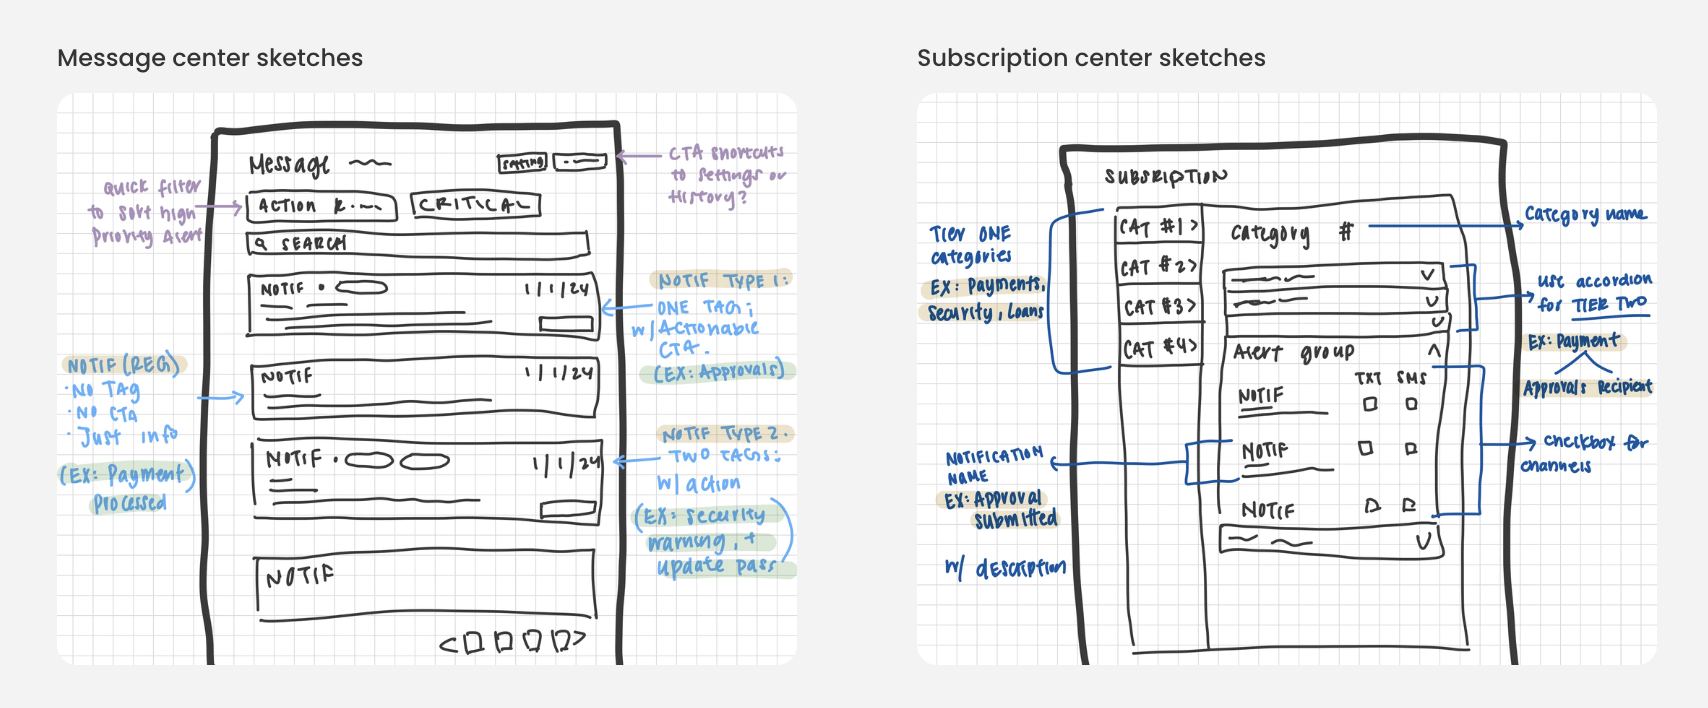 Message center sketches
Message
Setting
ACTION R
CRITICAL
SEARCH
NOTIF •
1/1/24
NOTIF
1/1/24
NOTIF •
1/1/24
NOTIF
Quick filter
to sort high
Priority Alert
CTA shortcuts
to Settings or
History?
NOTIF TYPE 1:
ONE TAG;
w/ Actionable
CTA.
(EX: Approvals)
NOTIF (REG)
· NO TAG
· NO CTA
· Just info
(EX: Payment)
Processed
NOTIF TYPE 2.
TWO TAGS:
w/ action
(EX: Security
warning, +
update pass)
Subscription center sketches
SUBSRIPTION
CAT #1 >
CAT #2 >
CAT #3 >
CAT #4 >
Category #
Alert group
TXT SMS
NOTIF
NOTIF
NOTIF
Tier ONE
categories
EX: Payments,
Security, Loans
NOTIFICATION
NAME
EX: Approval
submitted
w/ description
Category name
use accordion
for TIER TWO
EX: Payment
Approvals Recipient
checkbox for
channels